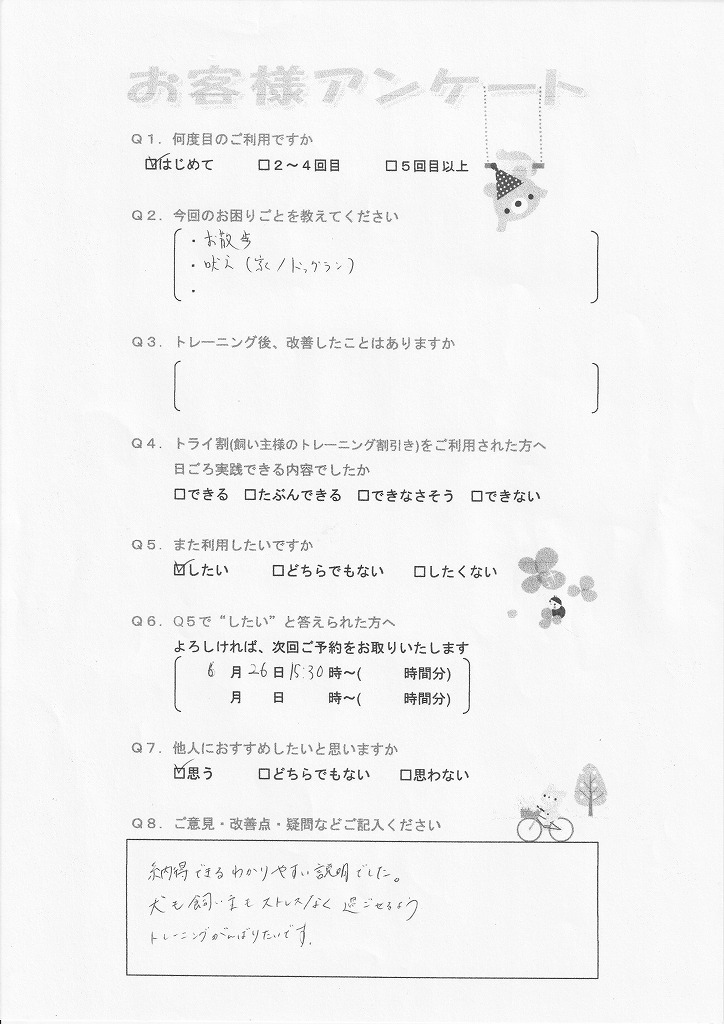 お客様アンケート
Q1. 何度目のご利用ですか
☑はじめて □2～4回目 □5回目以上
Q2. 今回のお困りごとを教えてください
・お散歩
・吠え(家/ドッグラン)
・
Q3. トレーニング後、改善したことはありますか
Q4. トライ割(飼い主様のトレーニング割引き)をご利用された方へ
日ごろ実践できる内容でしたか
□できる □たぶんできる □できなさそう □できない
Q5. また利用したいですか
☑したい □どちらでもない □したくない
Q6. Q5で“したい”と答えられた方へ
よろしければ、次回ご予約をお取りいたします
6月26日15:30時～( 時間分)
月 日 時～( 時間分)
Q7. 他人におすすめしたいと思いますか
☑思う □どちらでもない □思わない
Q8. ご意見・改善点・疑問などご記入ください
納得できるわかりやすい説明でした。
犬も飼い主もストレスなく過ごせるよう
トレーニングがんばりたいです。